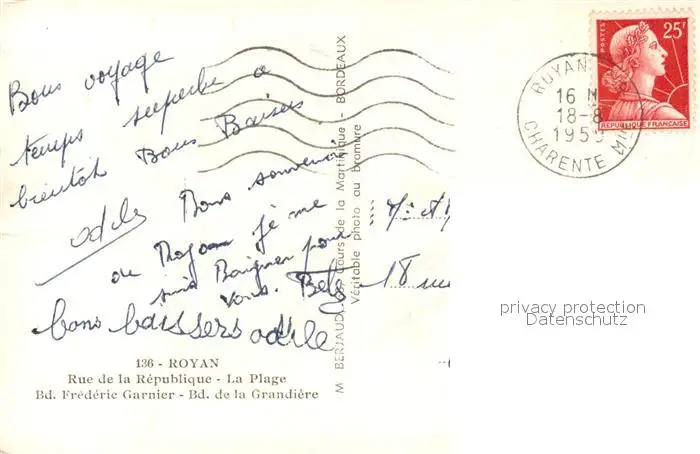 Bons voyage
temps superbe a
bientot Bons Baisers
odile
Bons souvenir
de Royan je me
suis Baigner pour
vous.
bons baissers odile
136 - ROYAN
Rue de la République - La Plage
Bd. Frédéric Garnier - Bd. de la Grandière
M BERJAUD, Cours de la Martinique - BORDEAUX
Véritable photo au bromure
18
ROYAN
16 H
18-8
195
CHARENTE
POSTES
25F
REPUBLIQUE FRANÇAISE
privacy protection
Datenschutz